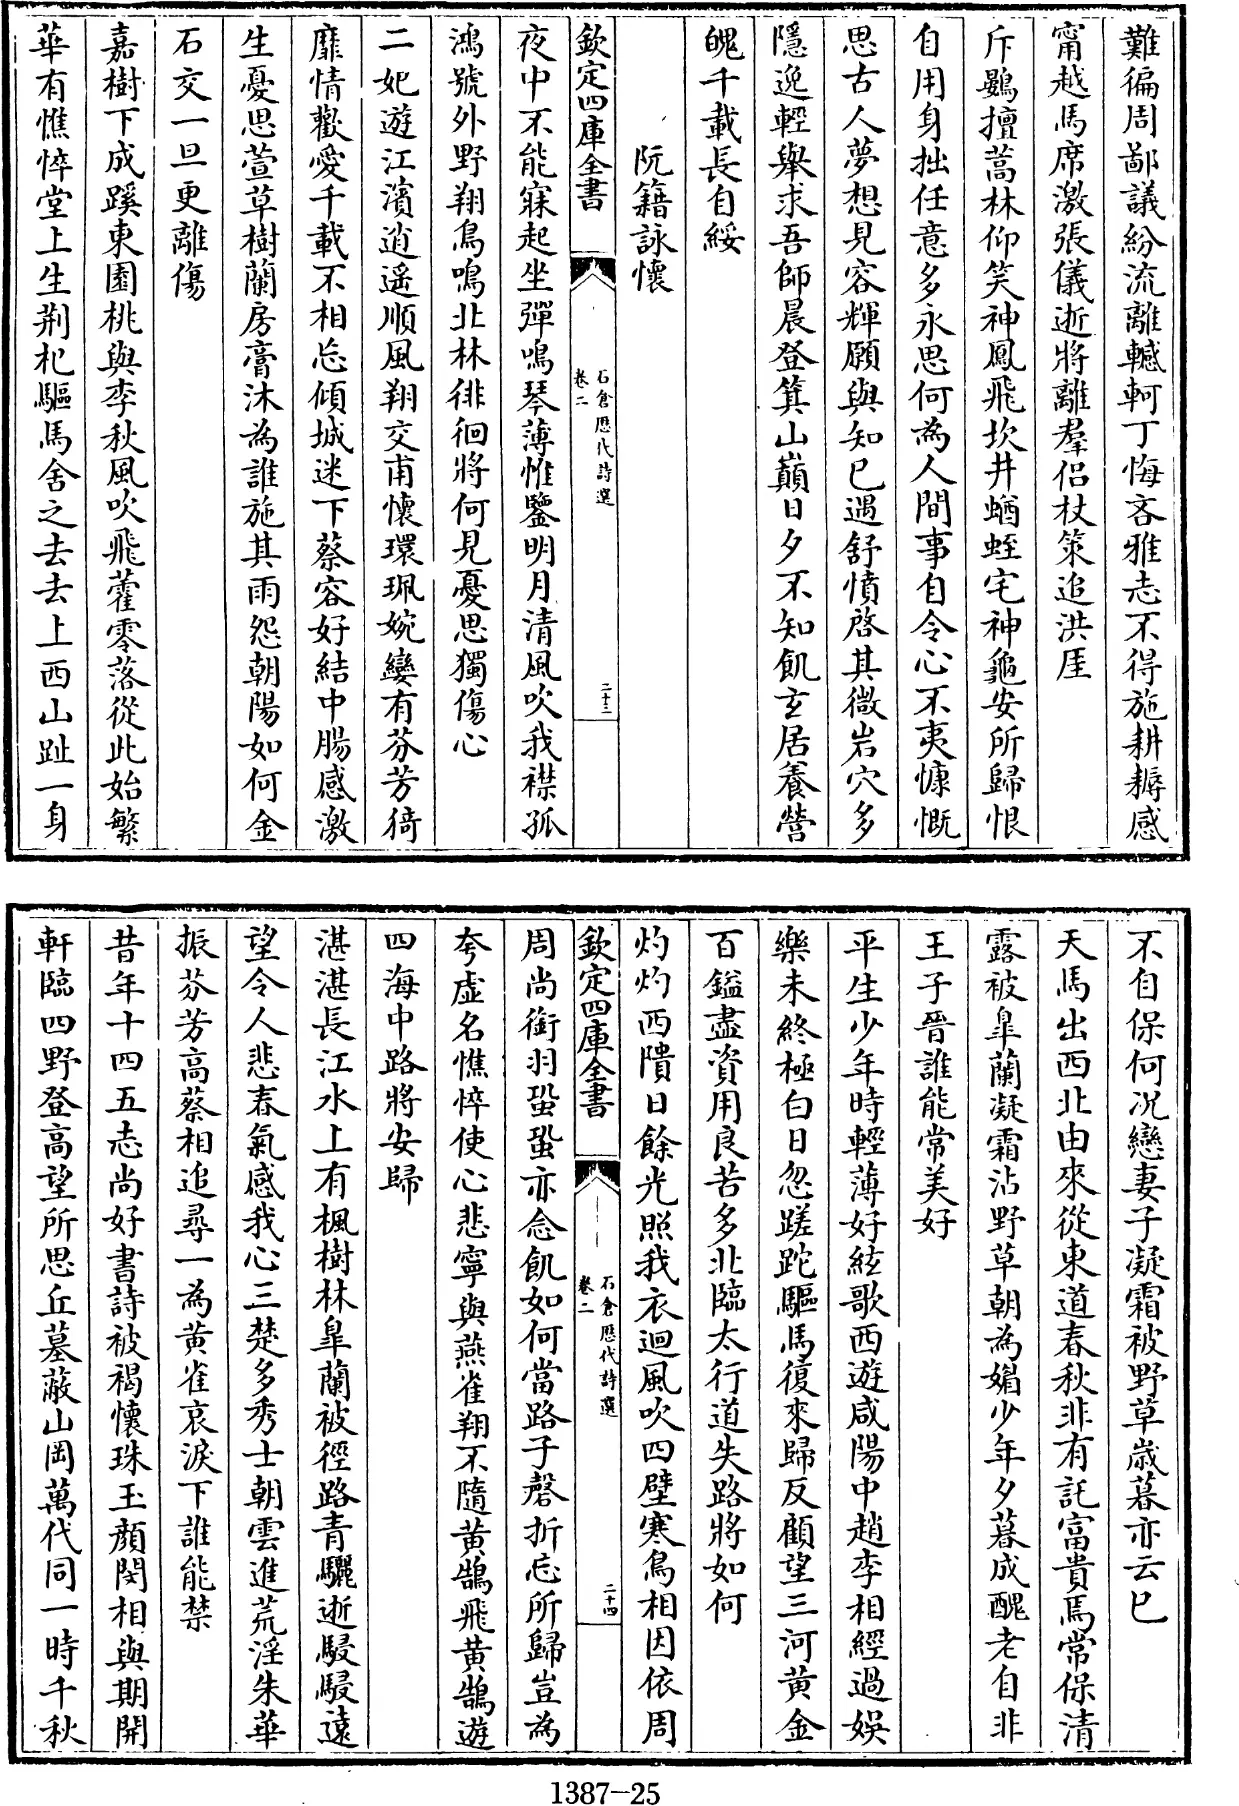 難徧周鄙議紛流離轗軻丁悔吝雅志不得施耕耨感
甯越馬席激張儀逝將離羣侶杖策追洪厓
斥鷃擅蒿林仰笑神鳳飛坎井蝤蛭宅神龜安所歸恨
自用身拙任意多永思何為人間事自令心不夷慷慨
思古人夢想見容輝願與知已遇舒憤啓其微岩穴多
隱逸輕舉求吾師晨登箕山巔日夕不知飢玄居養營
魄千載長自綏
阮籍詠懷
欽定四庫全書
石倉歷代詩選
卷二
二十三
夜中不能寐起坐彈鳴琴薄帷鑒明月清風吹我襟孤
鴻號外野翔鳥鳴北林徘徊將何見憂思獨傷心
二妃遊江濱逍遥順風翔交甫懷環珮婉孌有芬芳猗
靡情歡愛千載不相忘傾城迷下蔡容好結中腸感激
生憂思萱草樹蘭房膏沐為誰施其雨怨朝陽如何金
石交一旦更離傷
嘉樹下成蹊東園桃與李秋風吹飛藿零落從此始繁
華有憔悴堂上生荆杞驅馬舍之去去上西山趾一身
不自保何况戀妻子凝霜被野草歳暮亦云已
天馬出西北由來從東道春秋非有託富貴焉常保清
露被臯蘭凝霜沾野草朝為媚少年夕暮成醜老自非
王子晉誰能常美好
平生少年時輕薄好絃歌西遊咸陽中趙李相經過娱
樂未終極白日忽蹉跎驅馬復來歸反顧望三河黄金
百鎰盡資用良苦多北臨太行道失路將如何
灼灼西隤日餘光照我衣迴風吹四壁寒鳥相因依周
欽定四庫全書
石倉歷代詩選
卷二
二十四
周尚銜羽蛩蛩亦念飢如何當路子磬折忘所歸豈為
夸虚名憔悴使心悲寧與燕雀翔不隨黄鵠飛黄鵠遊
四海中路將安歸
湛湛長江水上有楓樹林臯蘭被徑路青驪逝駸駸遠
望令人悲春氣感我心三楚多秀士朝雲進荒淫朱華
振芬芳高蔡相追尋一為黄雀哀淚下誰能禁
昔年十四五志尚好書詩被褐懷珠玉顔閔相與期開
軒臨四野登高望所思丘墓蔽山岡萬代同一時千秋
1387-25